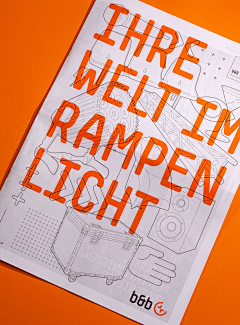 IHRE
WELT IM
RAMPEN
LICHT
b&b